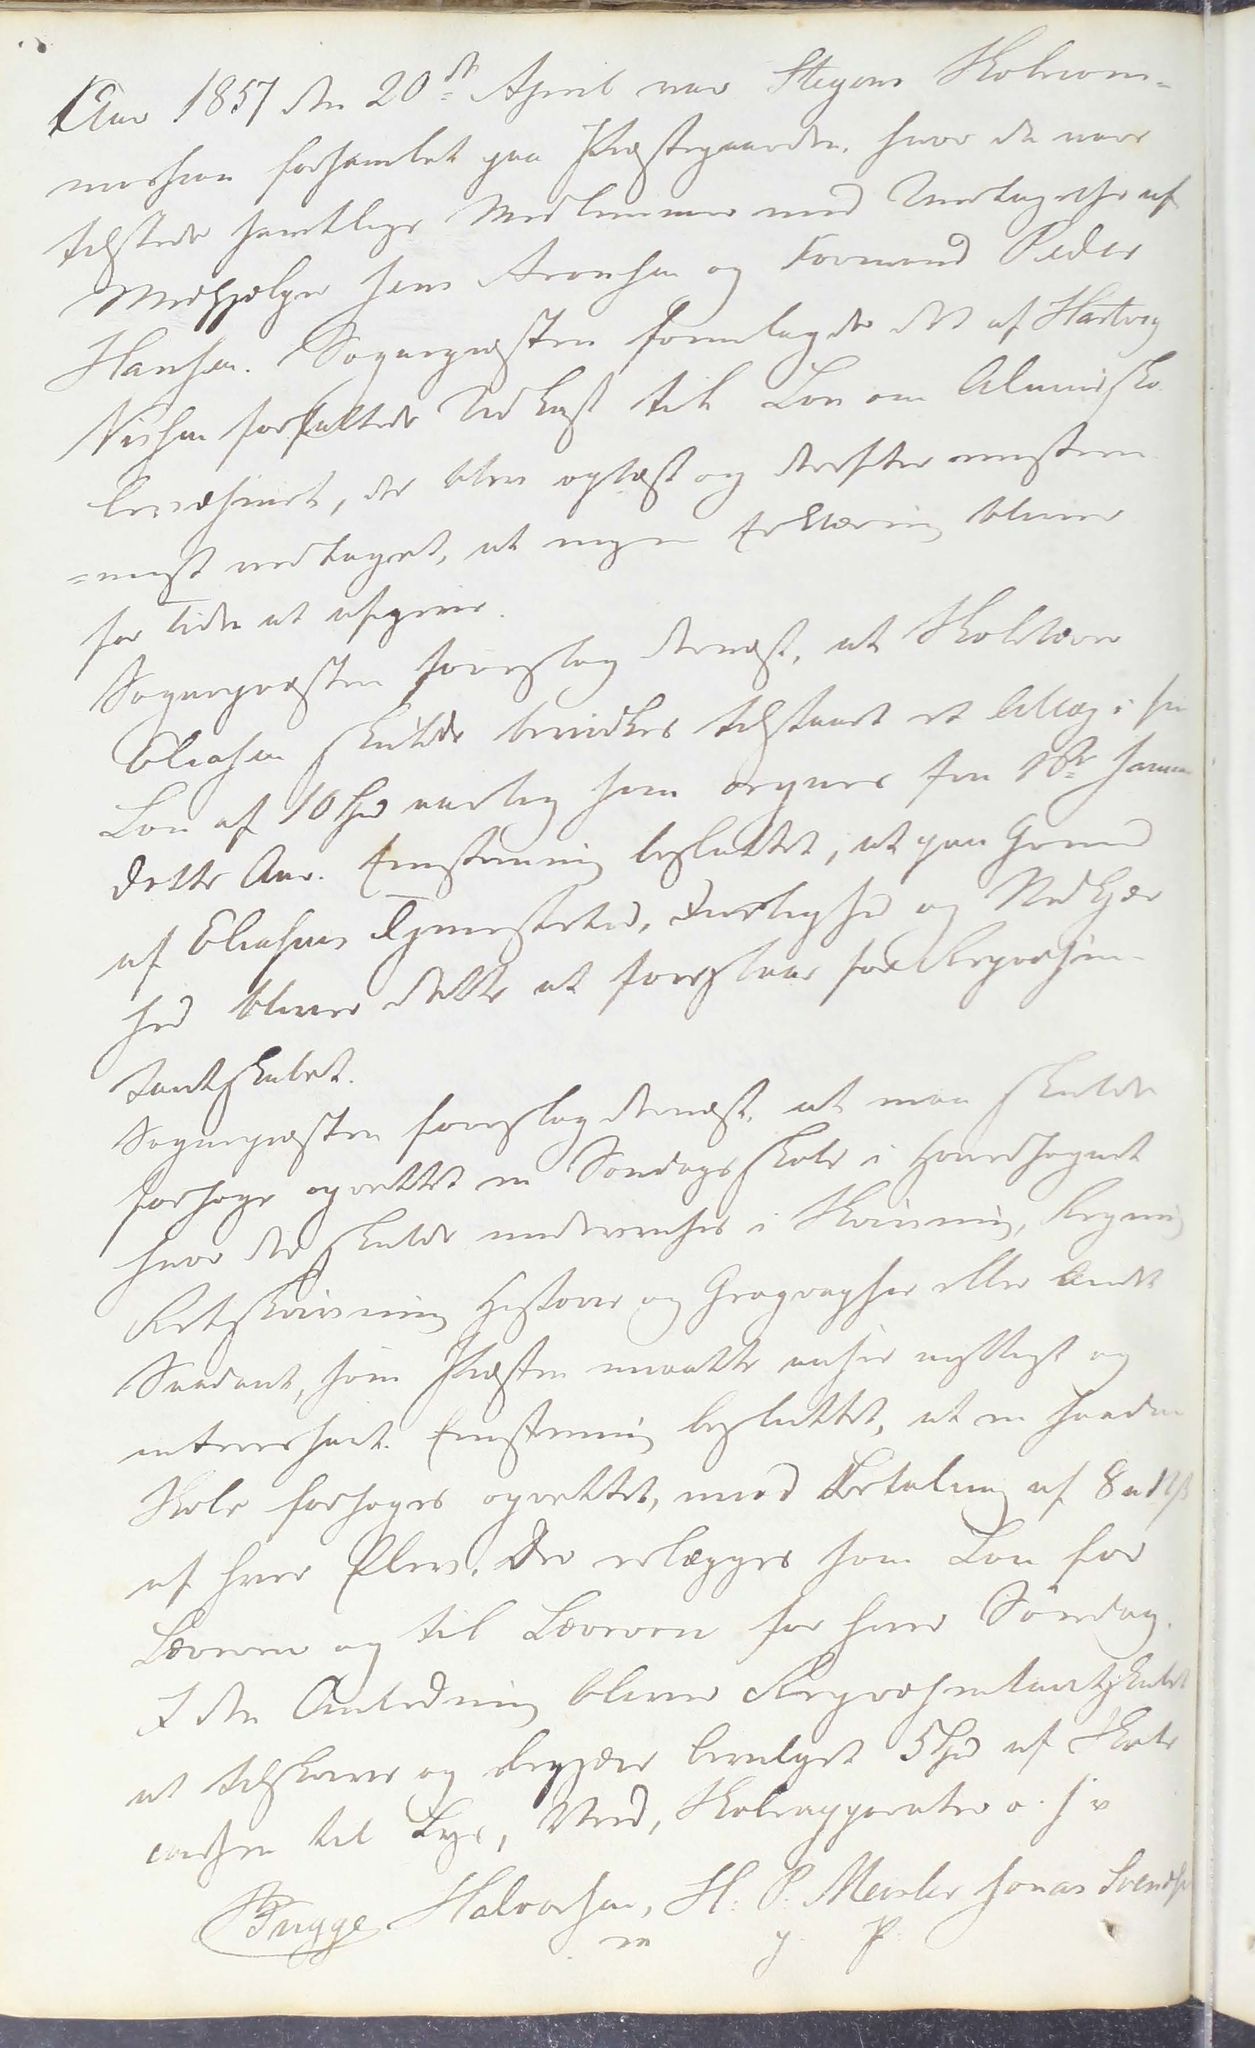 Aar 1857 den 20de April var Stegens Skolecom=
mission forsamlet paa Præstegaarden, hvor da vare
tilstede samtlige Medlemmer med Undtagelse af
Medhjelper Jens Aronsen og Formand Peder
Hansen. Sognepræsten foredlagde det af Hartvig
Nissen forfattede Udkast til Lov om Almueskole
levæsenet, der blev oplæst og derefter eenstem
=migt vedtaget, at ingen Erklæring bliver
for Tiden at afgive.
Sognepræsten foreslog dernæst, at Skolelærer
Eliasen skulde bevirkes tilstaaet et Tillæg i sin
Løn af 10 Spd aarlig som regnes fra 1ste Januar
dette Aar. Eenstemmig besluttet, at paa Grund
af Eliasens Tjenestetid, Duelighed og Nidkjær
hed bliver dette at foreslaae for Repræsen-
tantskabet.
Sognepræsten foreslog dernæst, at man skulde
forsøge oprettet en Søndagsskole i Hovedsognet
hvor der skulde underviises i Skrivning, Regning
Retskrivning Historie og Geographie eller Andet
Saadant, som Præsten maatte ansee nyttigt og
interessant. Eenstemmig besluttet, at en saadan
Skole forsøges oprettet, med Betaling af 8 a 12 ß
af hver Elev, der erlægges som Løn for
Læreren og til Læreren for hver Søndag.
I den Anledning bliver Repræsentantskabet
at tilskrive og begjære bevilget 5 Spd af Skole
cassen til Lys, Ved, Skoleapparater o. s. v
Brygge Halvorsen, H. P. Meisler Jonas Svendsen
m g P.